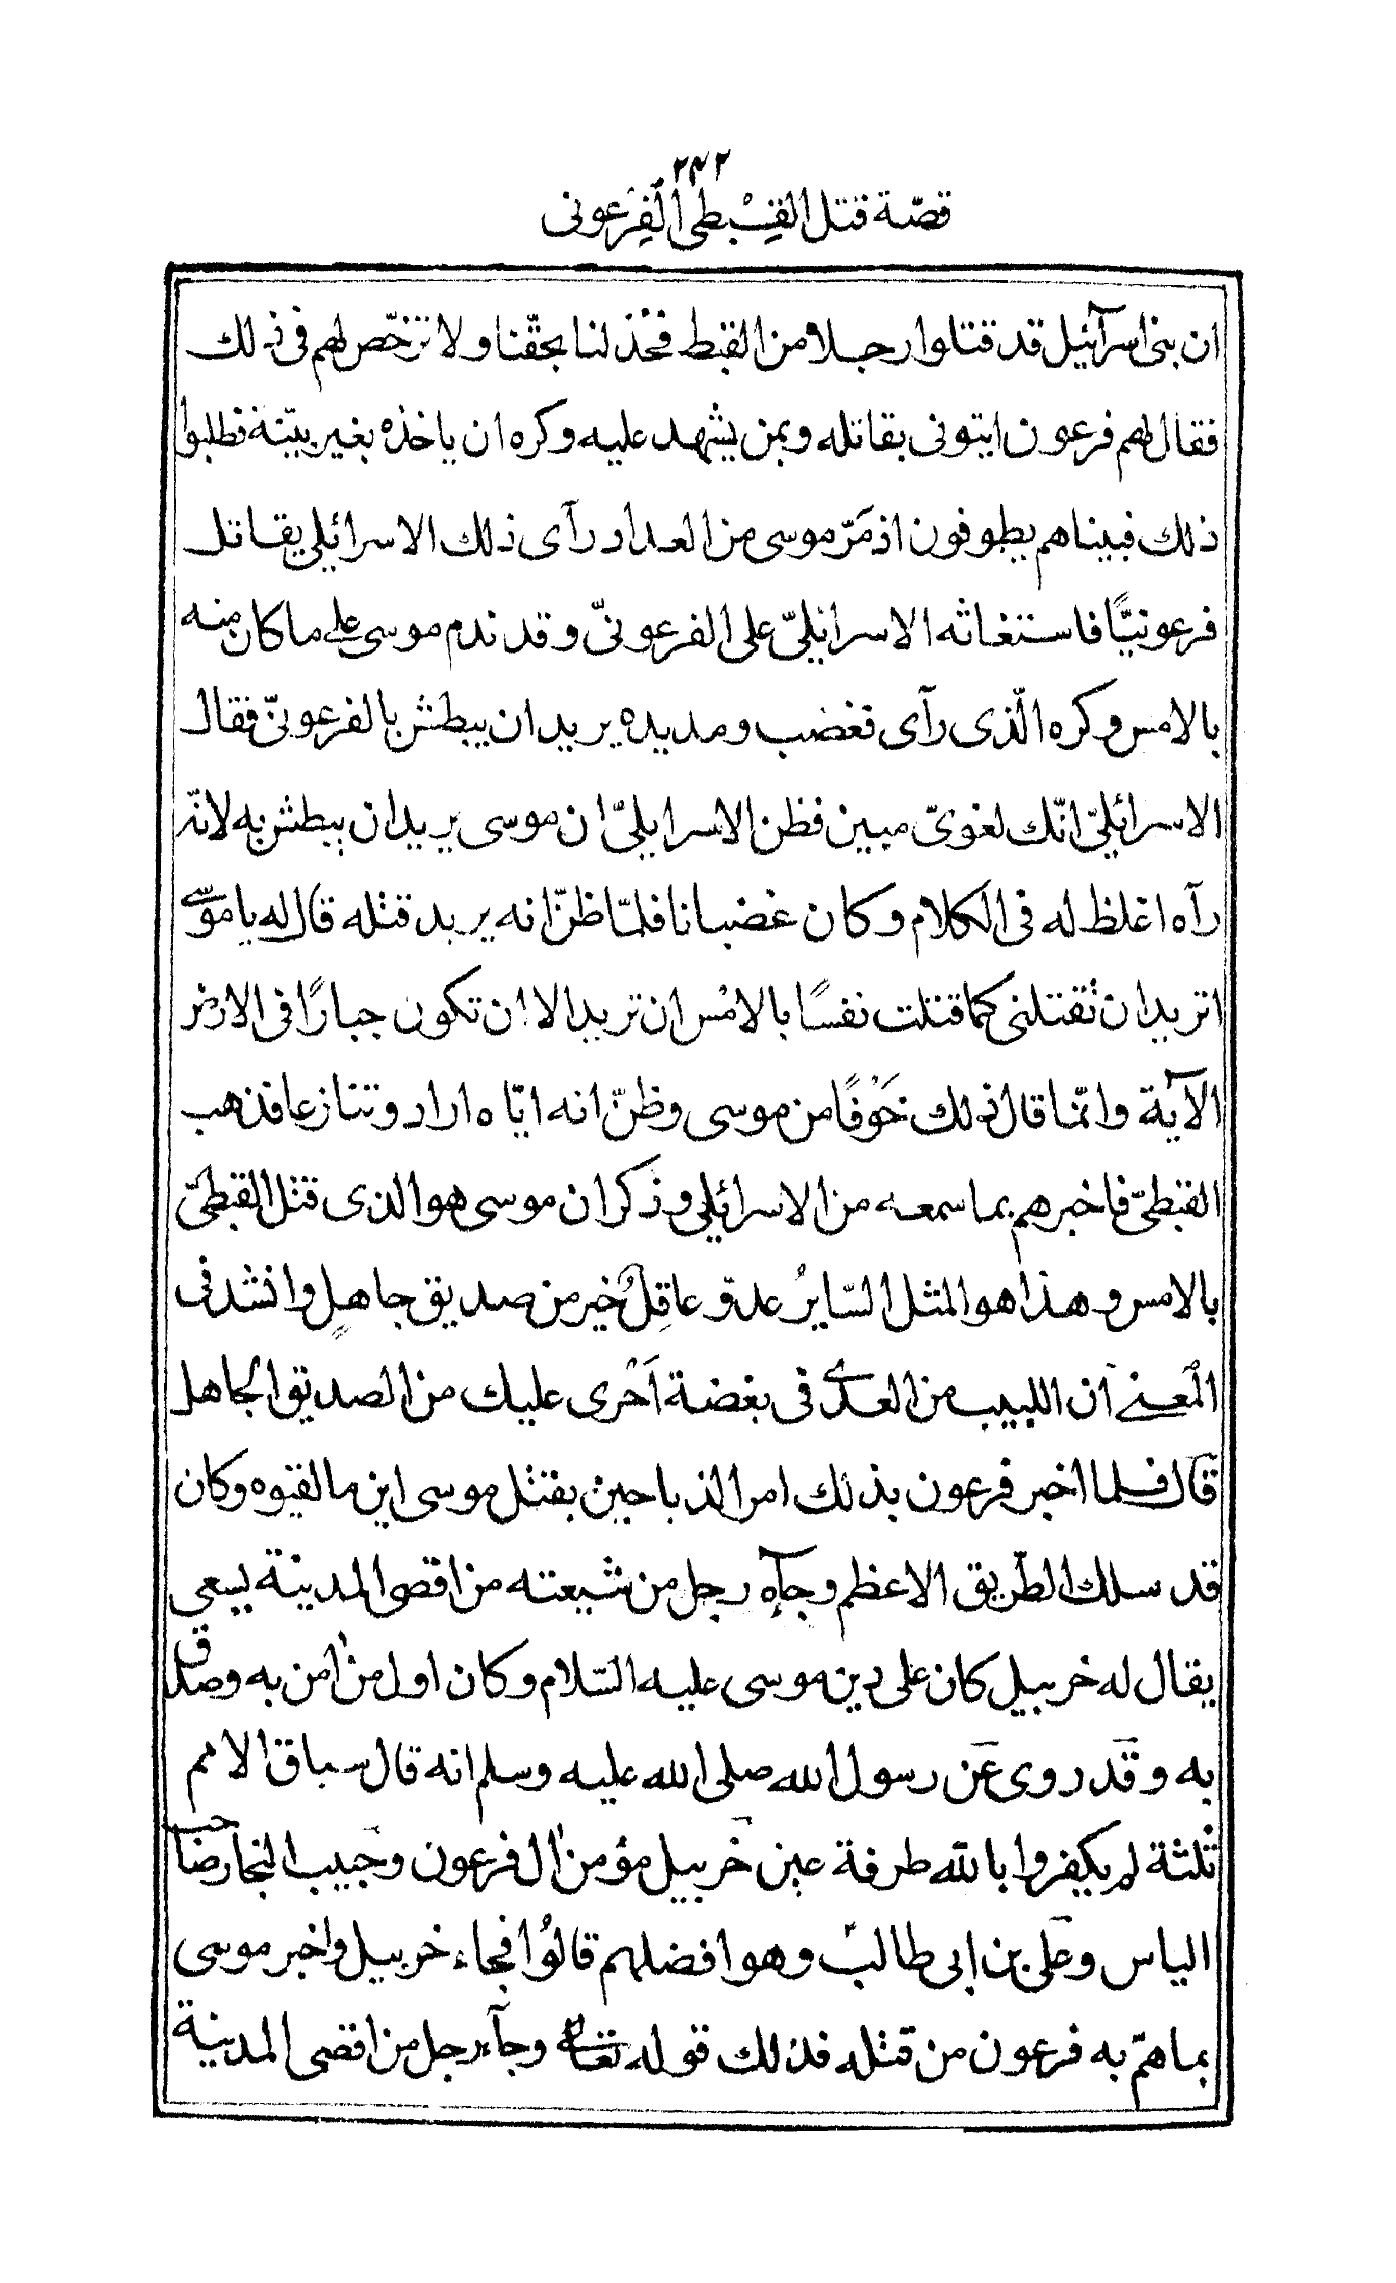 ٢٤٢
قصّة قتل القِبْطى الفِرْعونى
ان بنى اسرآئيل قد قتلوا رجلا من القبط فخُذ لنا بحقّنا ولا ترخّص لهم فى ذلك
فقال لهم فرعون ايتونى بقاتله وبمن يشهد عليه وكره ان ياخذه بغير بيّنة فطلبوا
ذلك فبيناهم يطوفون اذ مَرّ موسى من الغد اذ رآى ذلك الاسرائلي يقاتل
فرعونيًّا فاستغاثه الاسرائليّ على الفرعونىّ وقد ندم موسى على ما كان منه
بالامس وكره الّذى رآى فغضب ومد يده يريد ان يبطش بالفرعونىّ فقال
الاسرائليّ انّك لغوىّ مبين فظن الاسرايلىّ ان موسى يريد ان يبطش به لانّه
رآه اغلظ له فى الكلام وكان غضبانا فلمّا ظنّ انه يريد قتله قال له يا موسى
اتريد ان تقتلنى كما قتلت نفسًا بالامْس ان تريد الا ان تكون جبارًا فى الارض
الآية وانّما قال ذلك خَوْفًا من موسى وظنّ انه ايّاه اراد وتنازعا فذهب
القبطىّ فاخبرهم بما سمعه من الاسرائلي وذكر ان موسى هو الذى قتل القبطىّ
بالامس وهذا هو المثل السّايرُ عدوّ عاقِلٌ خير من صديق جاهلٍ وانشد فى
المعنى ان اللبيب من العدى فى بغضة اَحْرى عليك من الصديق الجاهل
قال فلما اخبر فرعون بذلك امر الذباحين بقتل موسى اين ما لقيوه وكان
قد سلك الطّريق الاعظم وجآءه رجل من شيعته من اقصى المدينة يسعى
يقال له خربيل كان على دين موسى عليه السّلام وكان اول من اٰمن به وصدق
به وقد روى عن رسول الله صلى الله عليه وسلم انه قال سباق الامم
ثلثة لم يكفروا بالله طرفة عين خربيل مؤمن اٰل فرعون وحبيب النجار صاحب
الياس وعلى بن ابى طالب وهو افضلهم قالُوا فجاء خربيل واخبر موسى
بما همّ به فرعون من قتله فذلك قوله تعالى وجآء رجل من اقصى المدينة